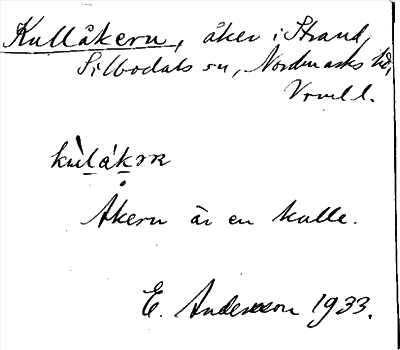 Kullåkern, åker i Strand,
Silbodals sn, Nordmarks hd,
Vrml.
Åkern är en kulle.
E. Andersson 1933.